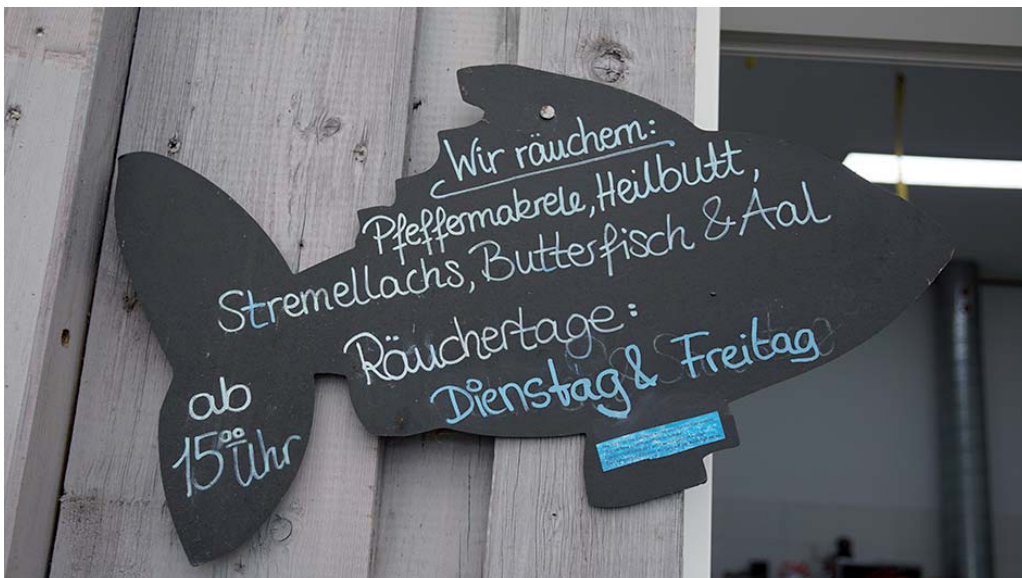 Wir räuchern:
Pfeffermakrele, Heilbutt,
Stremellachs, Butterfisch & Aal
Räuchertage:
Dienstag & Freitag
ab
15⁰⁰ Uhr